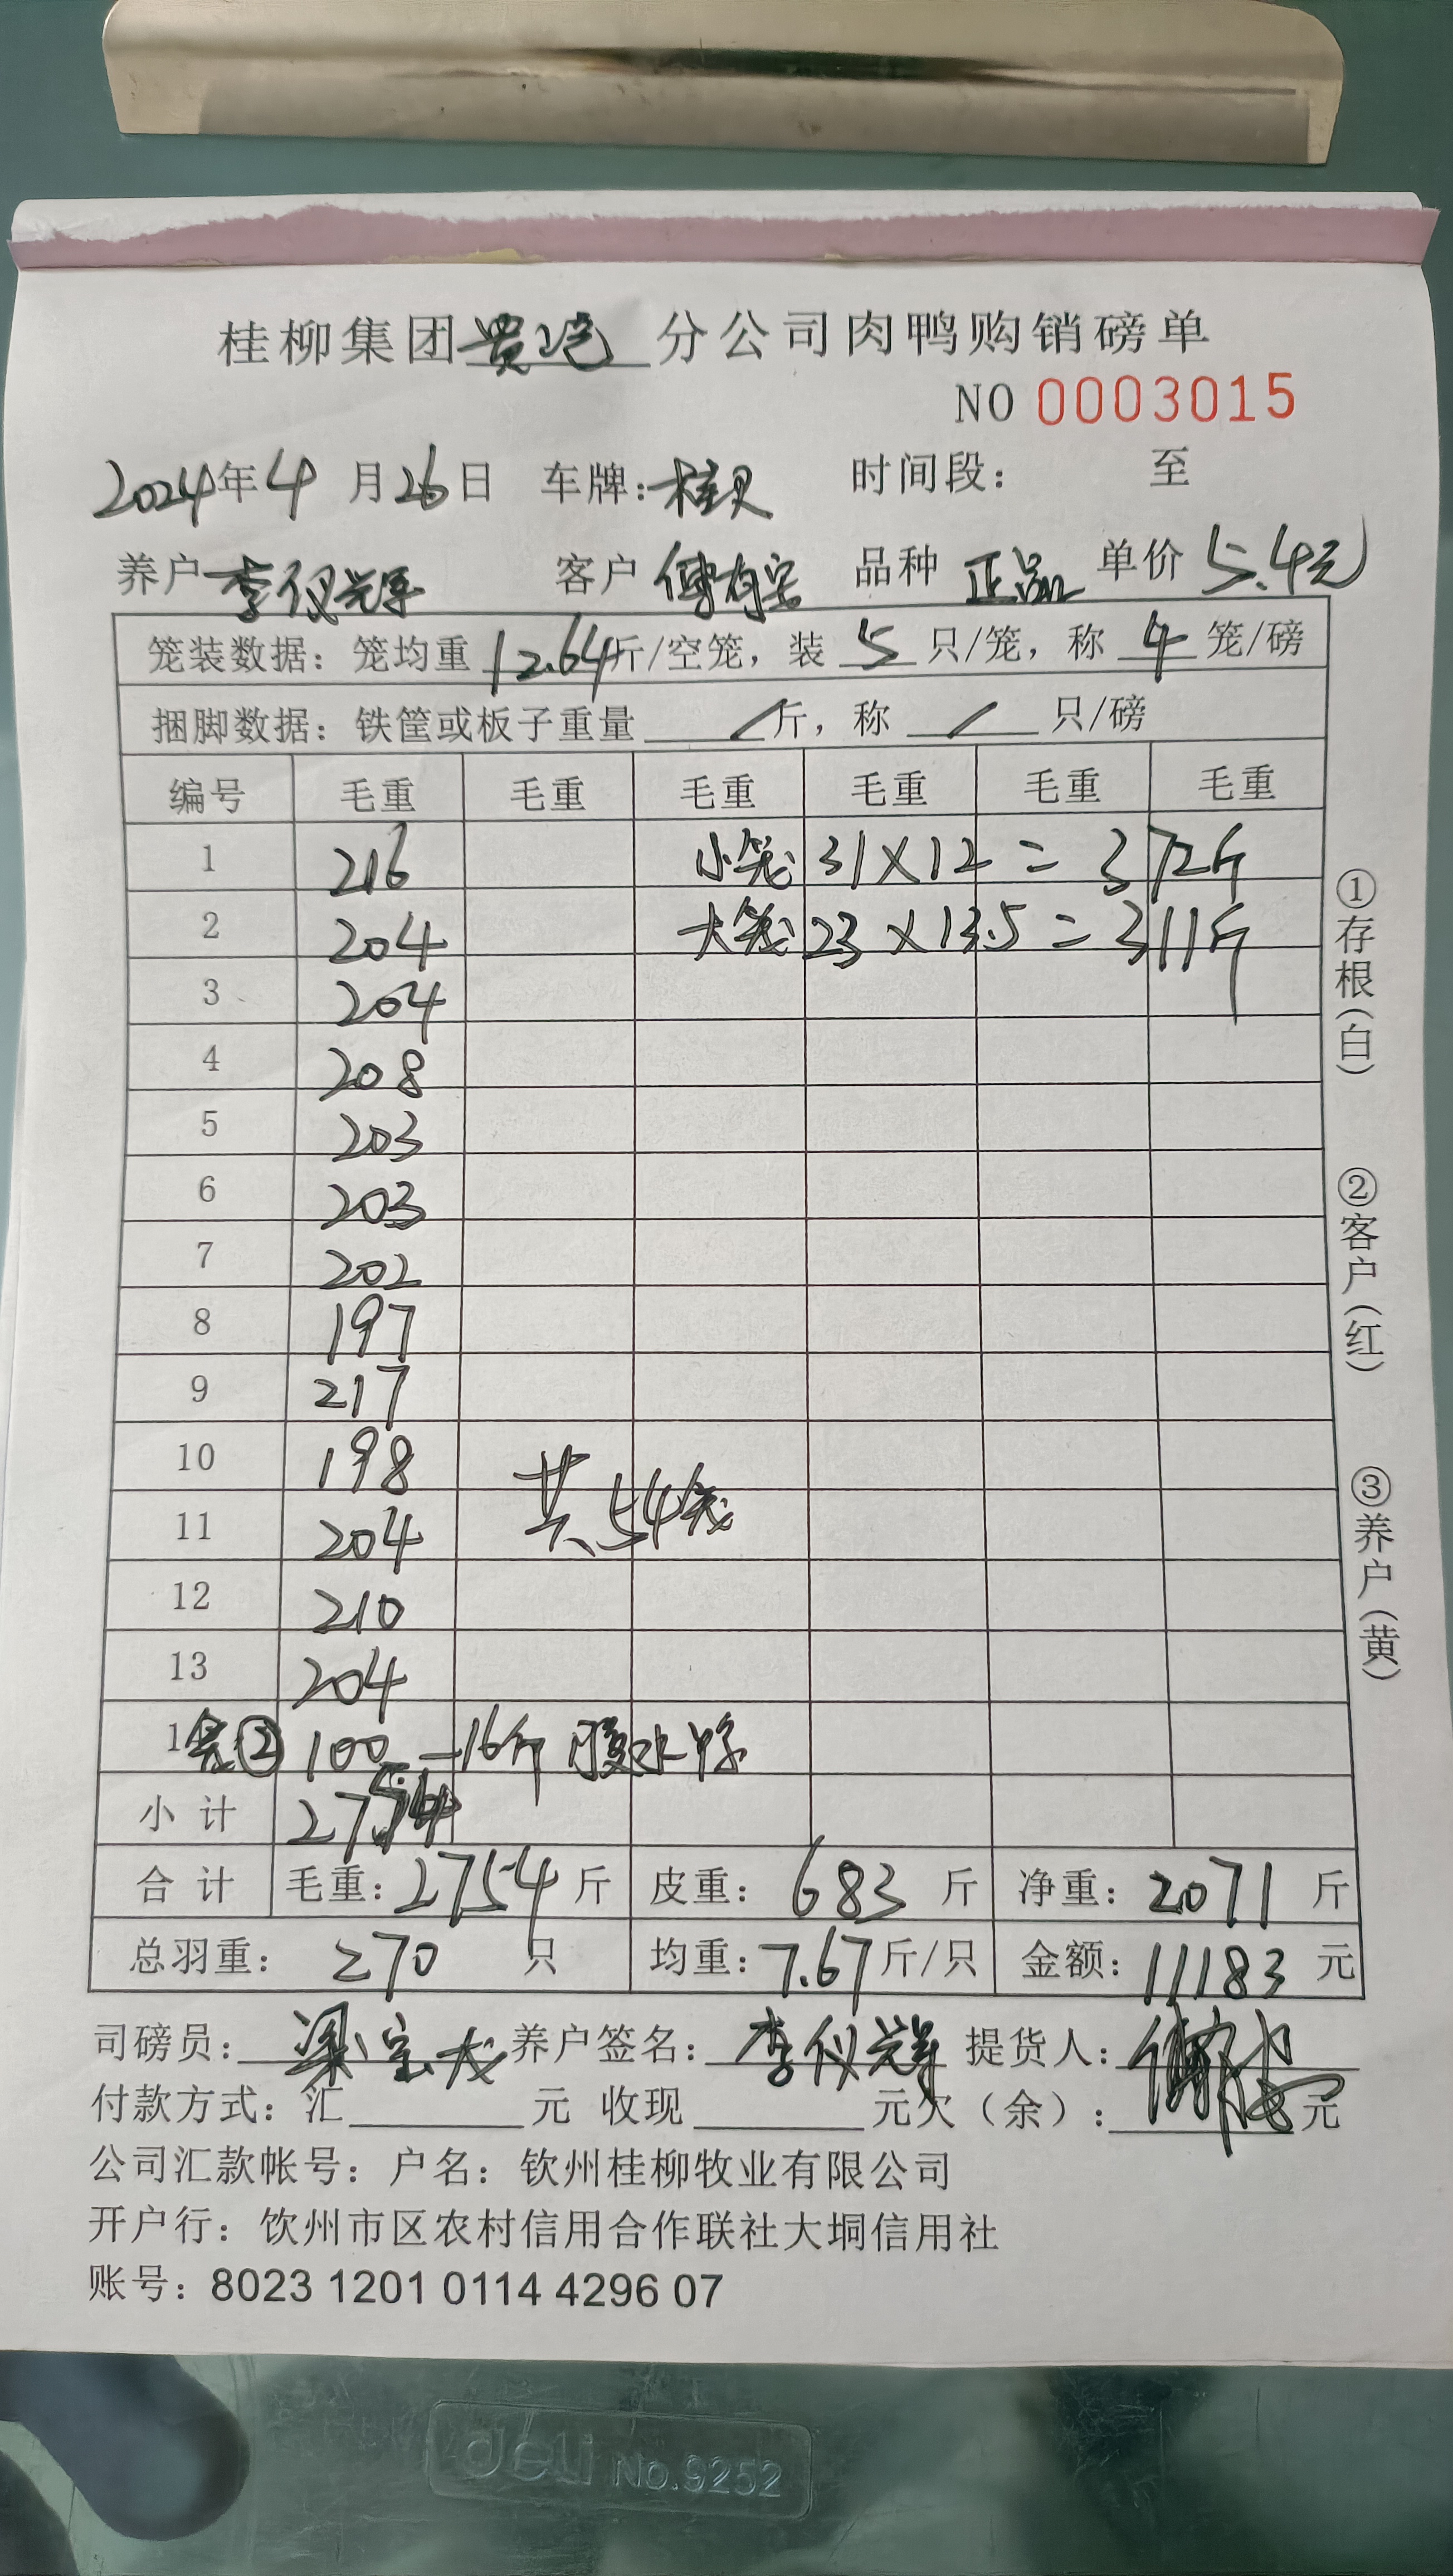 桂柳集团贵港分公司肉鸭购销磅单
NO 0003015
2024年4月26日 车牌:桂R 时间段: 至
养户 李仪光 客户 傅有 品种 正品 单价 5.4元
笼装数据:笼均重 12.64斤/空笼,装 5 只/笼,称 4 笼/磅
捆脚数据:铁筐或板子重量 / 斤,称 / 只/磅
编号 毛重 毛重 毛重 毛重 毛重 毛重
1 216 小笼 31×12=372斤
2 204 大笼 23×13.5=311斤
3 204
4 208
5 203
6 203
7 202
8 197
9 217
10 198
共54笼
11 204
12 210
13 204
1 笼② 100 -16斤 胶水
小计 2754
合计 毛重:2754斤 皮重:683斤 净重:2071斤
总羽重: 270 只 均重:7.67斤/只 金额:11183元
司磅员: 梁宝 养户签名: 李仪 提货人:
付款方式:汇 元 收现 元欠(余): 元
公司汇款帐号:户名:钦州桂柳牧业有限公司
开户行:钦州市区农村信用合作联社大垌信用社
账号:8023 1201 0114 4296 07
①存根(白)
②客户(红)
③养户(黄)
deli No.9252